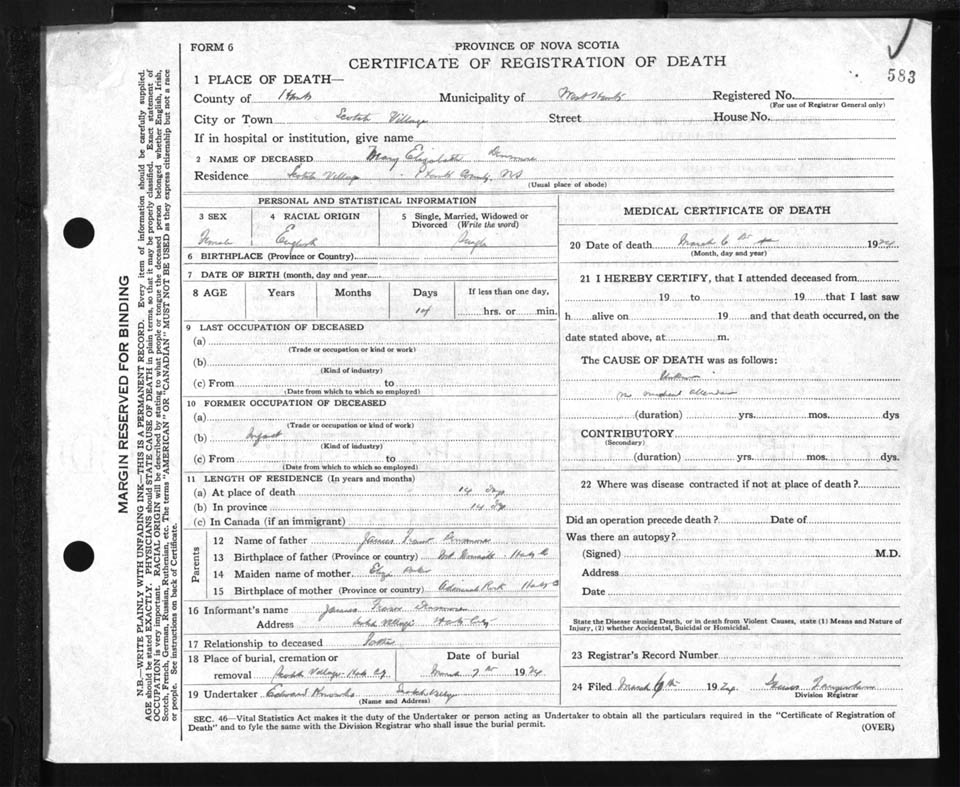 FORM 6
PROVINCE OF NOVA SCOTIA
CERTIFICATE OF REGISTRATION OF DEATH
583
1 PLACE OF DEATH—
County of Hants Municipality of West Hants Registered No.
(For use of Registrar General only)
City or Town Scotch Village Street House No.
If in hospital or institution, give name
2 NAME OF DECEASED Mary Elizabeth
Residence Scotch Village Hants County, NS
(Usual place of abode)
PERSONAL AND STATISTICAL INFORMATION
3 SEX 4 RACIAL ORIGIN 5 Single, Married, Widowed or Divorced (Write the word)
Female English Single
6 BIRTHPLACE (Province or Country)
7 DATE OF BIRTH (month, day and year)
8 AGE Years Months Days If less than one day,
14 hrs. or min.
9 LAST OCCUPATION OF DECEASED
(a)
(Trade or occupation or kind or work)
(b)
(Kind of industry)
(c) From to
(Date from which to which so employed)
10 FORMER OCCUPATION OF DECEASED
(a)
(Trade or occupation or kind of work)
(b) Infant
(Kind of industry)
(c) From to
(Date from which to which so employed)
11 LENGTH OF RESIDENCE (In years and months)
(a) At place of death 14 Dys
(b) In province 14 Dy
(c) In Canada (if an immigrant)
Parents
12 Name of father James
13 Birthplace of father (Province or country) Hants Co
14 Maiden name of mother
15 Birthplace of mother (Province or country) Admiral Rock Hants Co
16 Informant's name James
Address Scotch Village Hants Cty
17 Relationship to deceased Father
18 Place of burial, cremation or removal Scotch Village Hants Cty Date of burial March 7th 1924
19 Undertaker Edward Scotch Village
(Name and Address)
MEDICAL CERTIFICATE OF DEATH
20 Date of death March 6th 1924
(Month, day and year)
21 I HEREBY CERTIFY, that I attended deceased from
19 to 19 that I last saw
h alive on 19 and that death occurred, on the
date stated above, at m.
The CAUSE OF DEATH was as follows:
Unknown
no medical attendance
(duration) yrs. mos. dys
CONTRIBUTORY
(Secondary)
(duration) yrs. mos. dys.
22 Where was disease contracted if not at place of death?
Did an operation precede death? Date of
Was there an autopsy?
(Signed) M.D.
Address
Date
State the Disease causing Death, or in death from Violent Causes, state (1) Means and Nature of
Injury, (2) whether Accidental, Suicidal or Homicidal.
23 Registrar's Record Number
24 Filed March 1924
Division Registrar
SEC. 46—Vital Statistics Act makes it the duty of the Undertaker or person acting as Undertaker to obtain all the particulars required in the "Certificate of Registration of
Death" and to fyle the same with the Division Registrar who shall issue the burial permit.
(OVER)
MARGIN RESERVED FOR BINDING
N.B.—WRITE PLAINLY WITH UNFADING INK—THIS IS A PERMANENT RECORD. Every item of information should be carefully supplied.
AGE should be stated EXACTLY. PHYSICIANS should STATE CAUSE OF DEATH in plain terms, so that it may be properly classified. Exact statement of
OCCUPATION is very important. RACIAL ORIGIN will be described by stating to what people or tongue the deceased person belonged whether English, Irish,
Scotch, French, German, Russian, Ruthenian, etc. The terms "AMERICAN" OR "CANADIAN" MUST NOT BE USED as they express citizenship but not a race
or people. See instructions on back of Certificate.